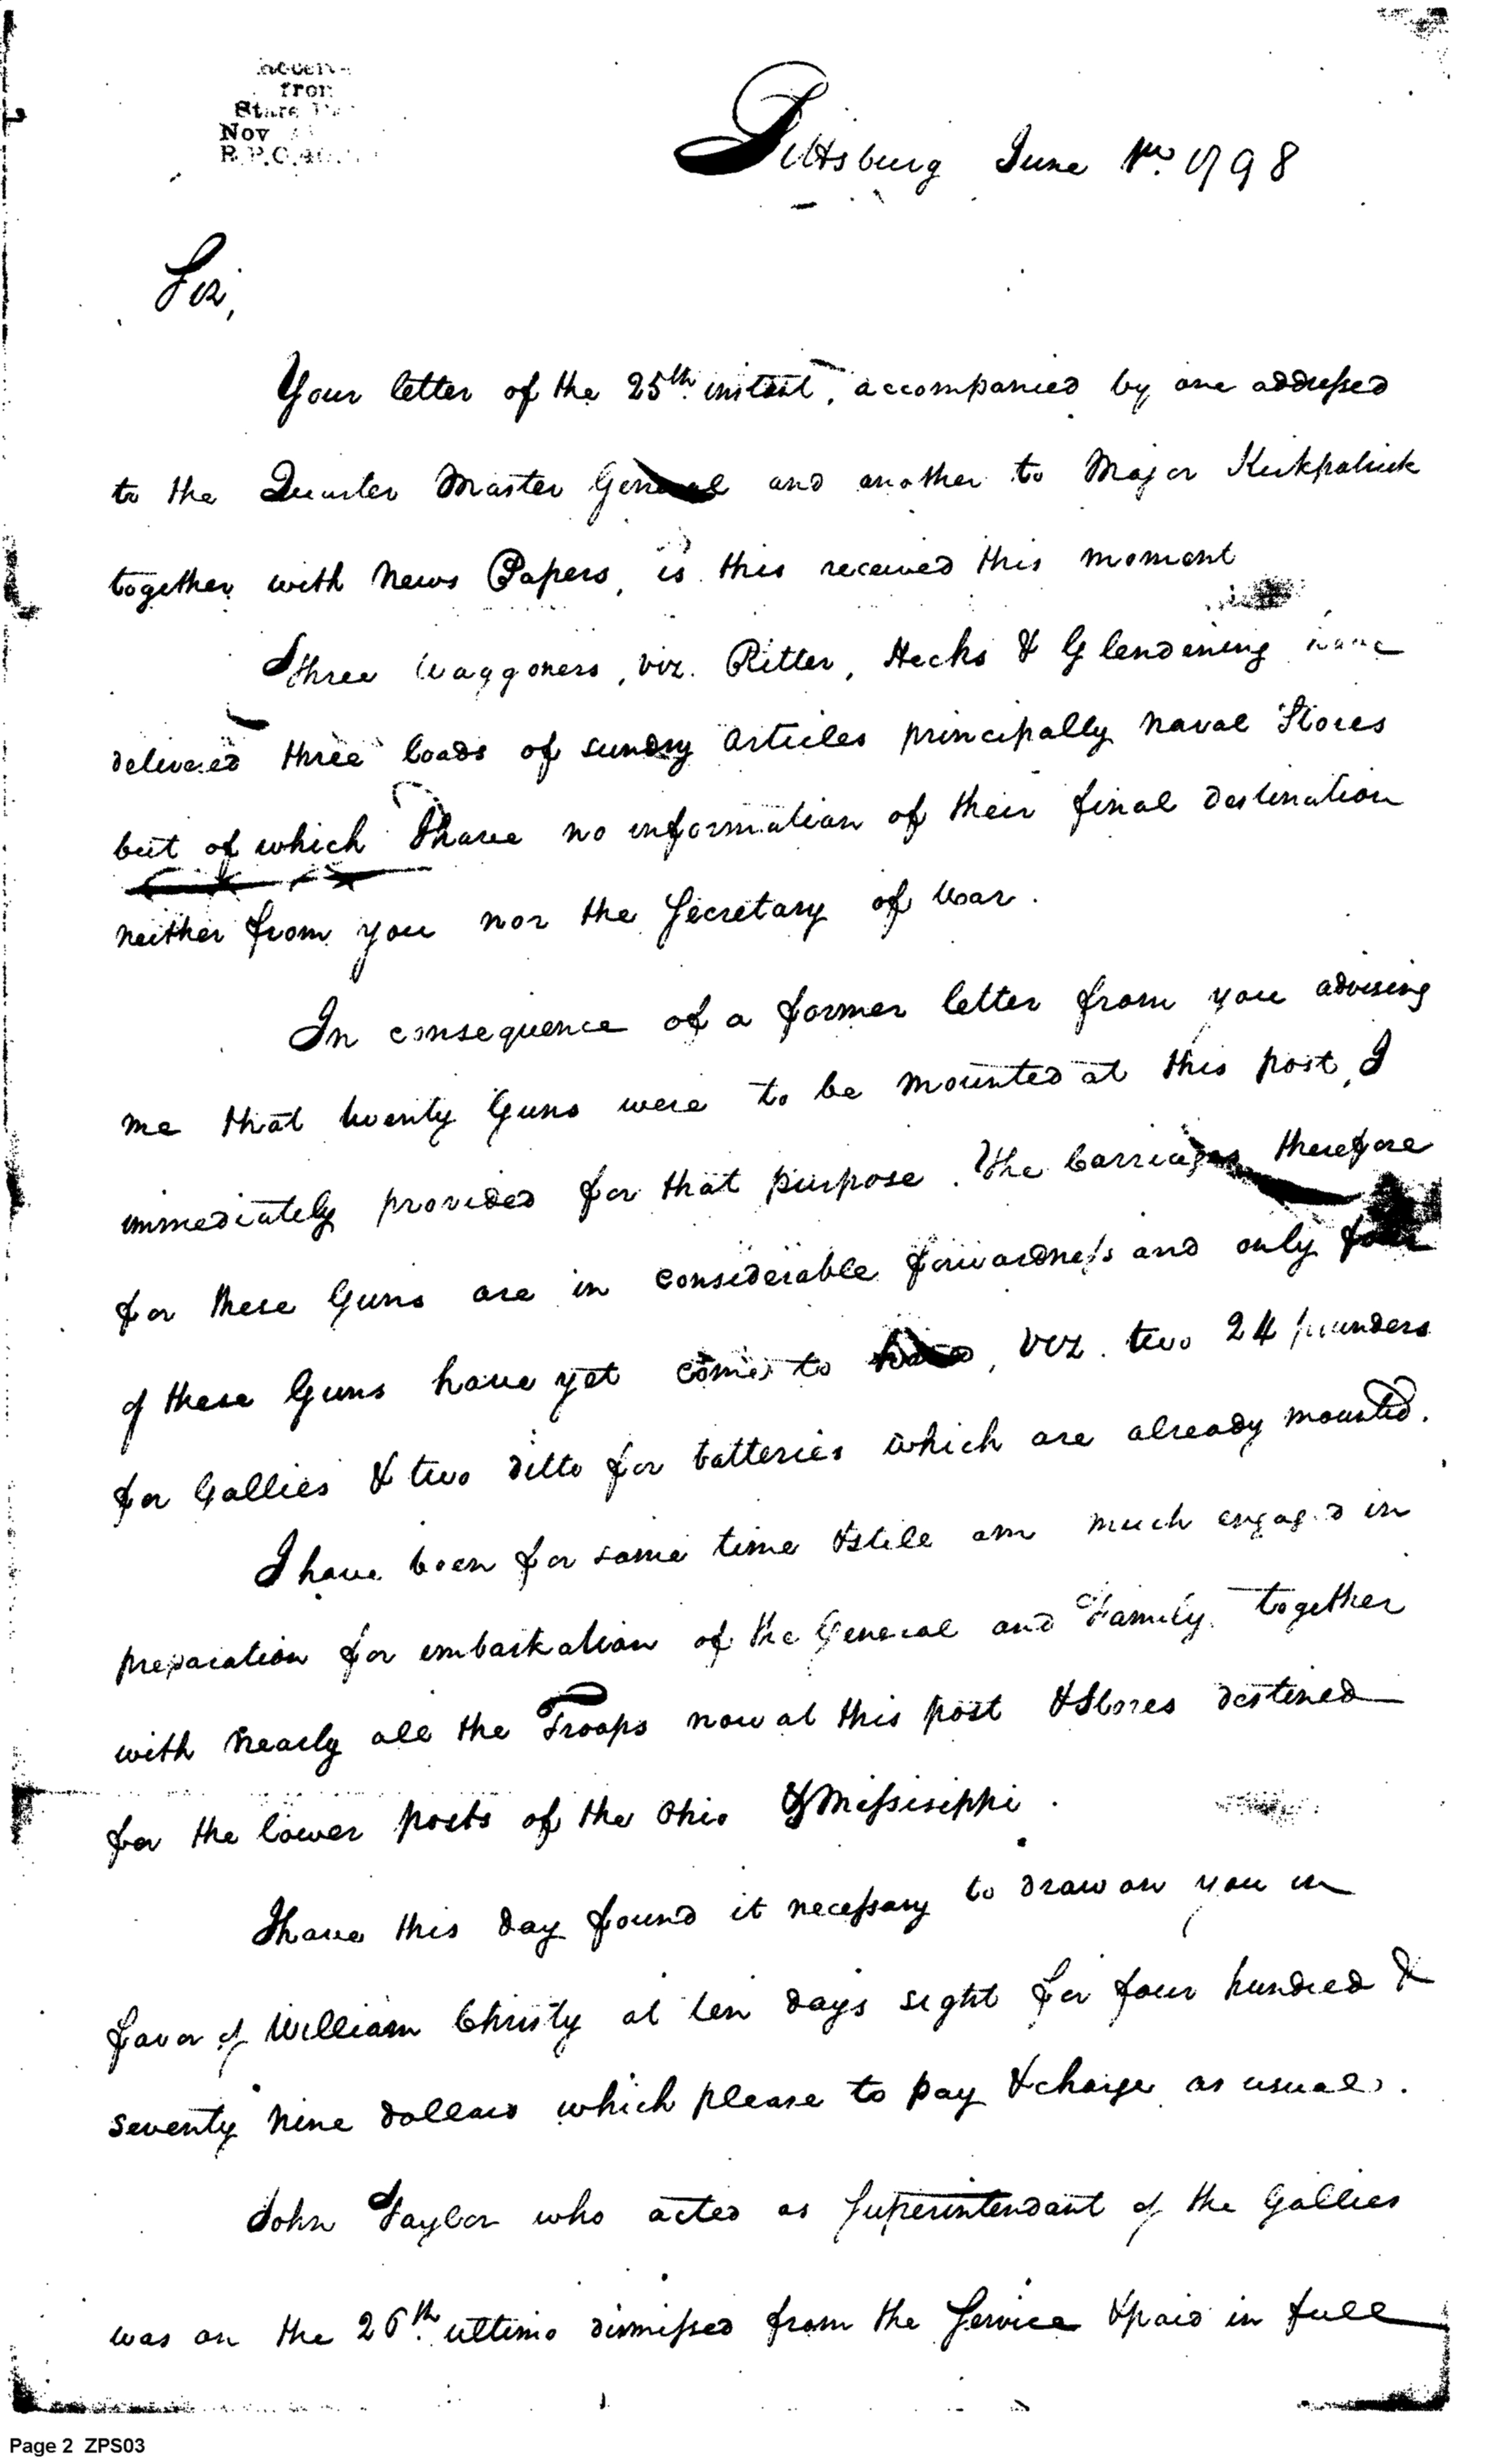 from
State
Nov
R.P.C.
Pittsburg June 1st. 1798
Sir,
Your letter of the 25th. instant, accompanied by one addressed
to the Quarter Master General and another to Major Kirkpatrick
together with News Papers, is this received this moment
Three Waggoners, viz. Ritter, Hecks & Glendening have
delivered three loads of sundry articles principally Naval Stores
but of which I have no information of their final destination
neither from you nor the Secretary of War.
In consequence of a former letter from you advising
me that twenty Guns were to be mounted at this post, I
immediately provided for that purpose. The Carriages therefore
for these Guns are in considerable forwardness and only four
of these Guns have yet come to hand, viz. two 24 pounders
for Gallies & two ditto for batteries which are already mounted.
I have been for some time & still am much engaged in
preparation for embarkation of the General and Family together
with nearly all the Troops now at this post & Stores destined
for the lower posts of the Ohio & Missisippi.
I have this day found it necessary to draw on you in
favor of William Christy at ten days sight for four hundred &
seventy nine dollars which please to pay & charge as usual.
John Taylor who acted as Superintendant of the Gallies
was on the 26th. ultimo dismissed from the Service & paid in full
Page 2 ZPS03